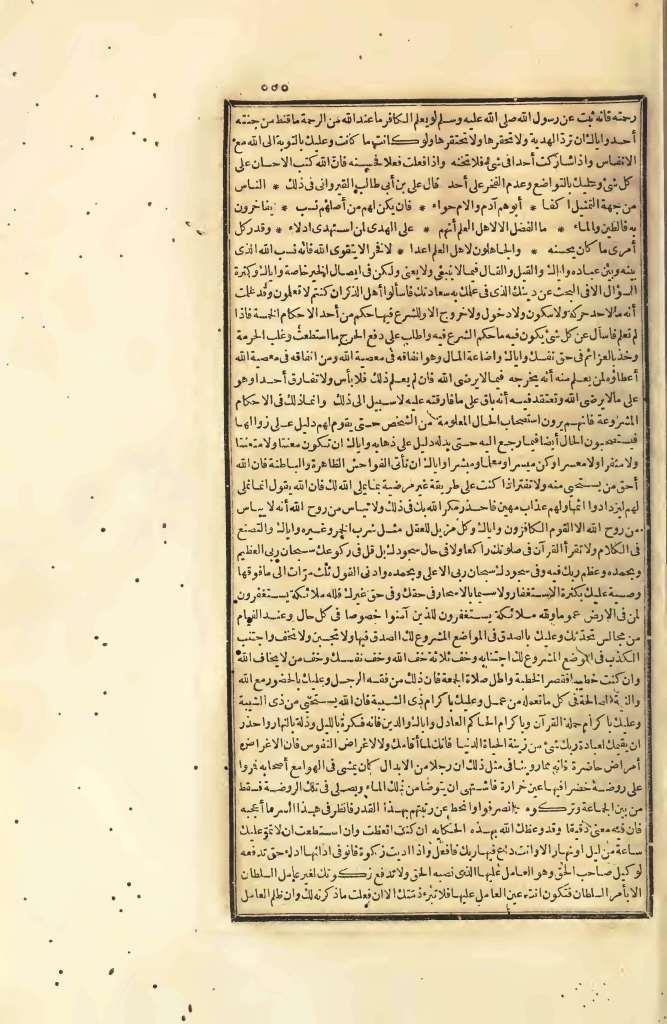 ٥٥٥
رحمته فانه ثبت عن رسول الله صلى الله عليه وسلم لو يعلم الكافر ما عند الله من الرحمة ما قنط من جنته
أحد واياك ان ترد الهدية ولا تحقرها ولا تحتقرها ولو كانت ما كانت وعليك بالتوبة الى الله مع
الانفاس واذا شاركت أحدا فى شئ فلا تخنه واذا فعلت فعلا فحسنه فان الله كتب الاحسان على
كل شئ وعليك بالتواضع وعدم الفخر على أحد قال على بن أبى طالب القيروانى فى ذلك * الناس
من جهة التمثيل أكفا * أبوهم آدم والام حواء * فان يكن لهم من أصلهم نسب * يفاخرون
به فالطين والماء * ما الفضل الا لاهل العلم أنهم * على الهدى لمن استهدى ادلاء * وقدر كل
أمرئ ما كان يحسنه * والجاهلون لاهل العلم اعدا * لا فخر الا بتقوى الله فانه نسب الله الذى
بينه وبين عباده واياك والقيل والقال فيما لا ينبغى ولا يعنى ولكن فى ايصال الخير خاصة واياك وكثرة
السؤال الا فى البحث عن دينك الذى فى علمك به سعادتك فاسألوا أهل الذكر ان كنتم لا تعلمون وقد علمت
أنه ما لاحد حركة ولا سكون ولا دخول ولا خروج الا وللشرع فيها حكم من أحد الاحكام الخمسة فاذا
لم تعلم فاسأل عن كل شئ يكون فيه ما حكم الشرع فيه واطلب على دفع الحرج ما استطعت وغلب الحرمة
وخذ بالعزائم فى حق نفسك واياك واضاعة المال وهو انفاقه فى معصية الله ومن انفاقه فى معصية الله
أعطاؤه لمن يعلم منه أنه يخرجه فيما لا يرضى الله فان لم يعلم ذلك فلا بأس ولا تفارق أحدا وهو
على ما لا يرضى الله وتعتقد فيه أنه باق على ما فارقته عليه لا سبيل الى ذلك وانما ذلك فى الاحكام
المشروعة فانهم يرون استصحاب الحال المعلومة من الشخص حتى يقوم لهم دليل على زوالها
فيستصحبون الحال أيضا فيما رجع اليه حتى يدله دليل على ذهابه واياك ان تكون معنتا ولا متعنتا
ولا منفرا ولا معسرا وكن ميسرا ومعلما ومبشرا واياك ان تأتى الفواحش الظاهرة والباطنة فان الله
أحق من يستحى منه ولا تغترا اذا كنت على طريقة غير مرضية بما يملى الله لك فان الله يقول انما نملى
لهم ليزدادوا اثما ولهم عذاب مهين فاحذر مكر الله بك فى ذلك ولا تيأس من روح الله أنه لا ييأس
من روح الله الا القوم الكافرون واياك وكل مزيل للعقل مثل شرب الخمر وغيره واياك والتصنع
فى الكلام ولا تقرأ القرآن فى صلاتك راكعا ولا فى حال سجودك بل قل فى ركوعك سبحان ربى العظيم
وبحمده وعظم ربك فيه وفى سجودك سبحان ربى الاعلى وبحمده وادنى القول ثلث مرات الى ما فوقها
وعليك بكثرة الاستغفار ولا سيما بالاسحار فى حقك وفى حق غيرك فلله ملائكة يستغفرون
لمن فى الارض عموما ولله ملائكة يستغفرون للذين آمنوا خصوصا فى كل حال وعند القيام
من مجالس تحدثك وعليك بالصدق فى المواضع المشروع لك الصدق فيها ولا تجبن ولا تخف واجتنب
الكذب فى الموضع المشروع لك اجتنابه وخف ثلاثة خف الله وخف نفسك وخف من لا يخاف الله
وان كنت خطيبا فقصر الخطبة واطل صلاة الجمعة فان ذلك من فقه الرجل وعليك بالحضور مع الله
والنية الصالحة فى كل ما تعمله من عمل وعليك باكرام ذى الشيبة فان الله يستحى من ذى الشيبة
وعليك باكرام حملة القرآن وباكرام الحاكم العادل واياك والدين فانه فكرة بالليل وذلة بالنهار واحذر
ان يقيمك لعبادة ربك شئ من زينة الحياة الدنيا فانك لما أقامك ولا لاغراض النفوس فان الاغراض
أمراض حاضرة فى مثل ذلك ان رجلا من الابدال كان يمشى فى الهوا مع أصحابه فمروا
على روضة خضرا فيها عين خرارة فاشتهى ان يتوضأ من ذلك الماء ويصلى فى تلك الروضة فسقط
من بين الجماعة وتركوه وانصرفوا وانحط عن رتبتهم بهذا القدر فانظر فى هذا السر ما أعجبه
فان فيه معنى دقيقا وقد وعظك الله بهذه الحكاية ان كنت اتعظت وان استطعت ان لا تمر عليك
ساعة من ليل او نهار الا وانت داع فيها ربك فافعل واذا اديت زكوة فانو فى ادائها اداء حق تدفعه
لوكيل صاحب الحق وهو العامل عليها الذى نصبه الحق ولا تدفع زكوتك لغير عامل السلطان
الا بأمر السلطان فتكون انت عين العامل عليها فلا تبرئ ذمتك الا ان فعلت ما ذكرته لك وان ظلم العامل